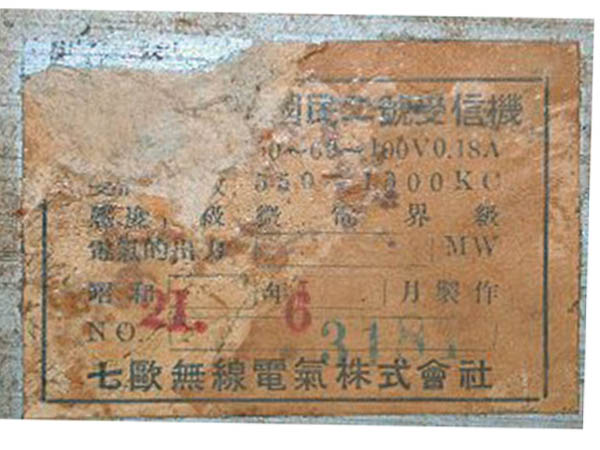 國民二號受信機
50～60～100V0.18A
550～1500KC
感度 微電界級
電氣的出力 MW
昭和21.年6月製作
NO. 3181
七歐無線電氣株式會社